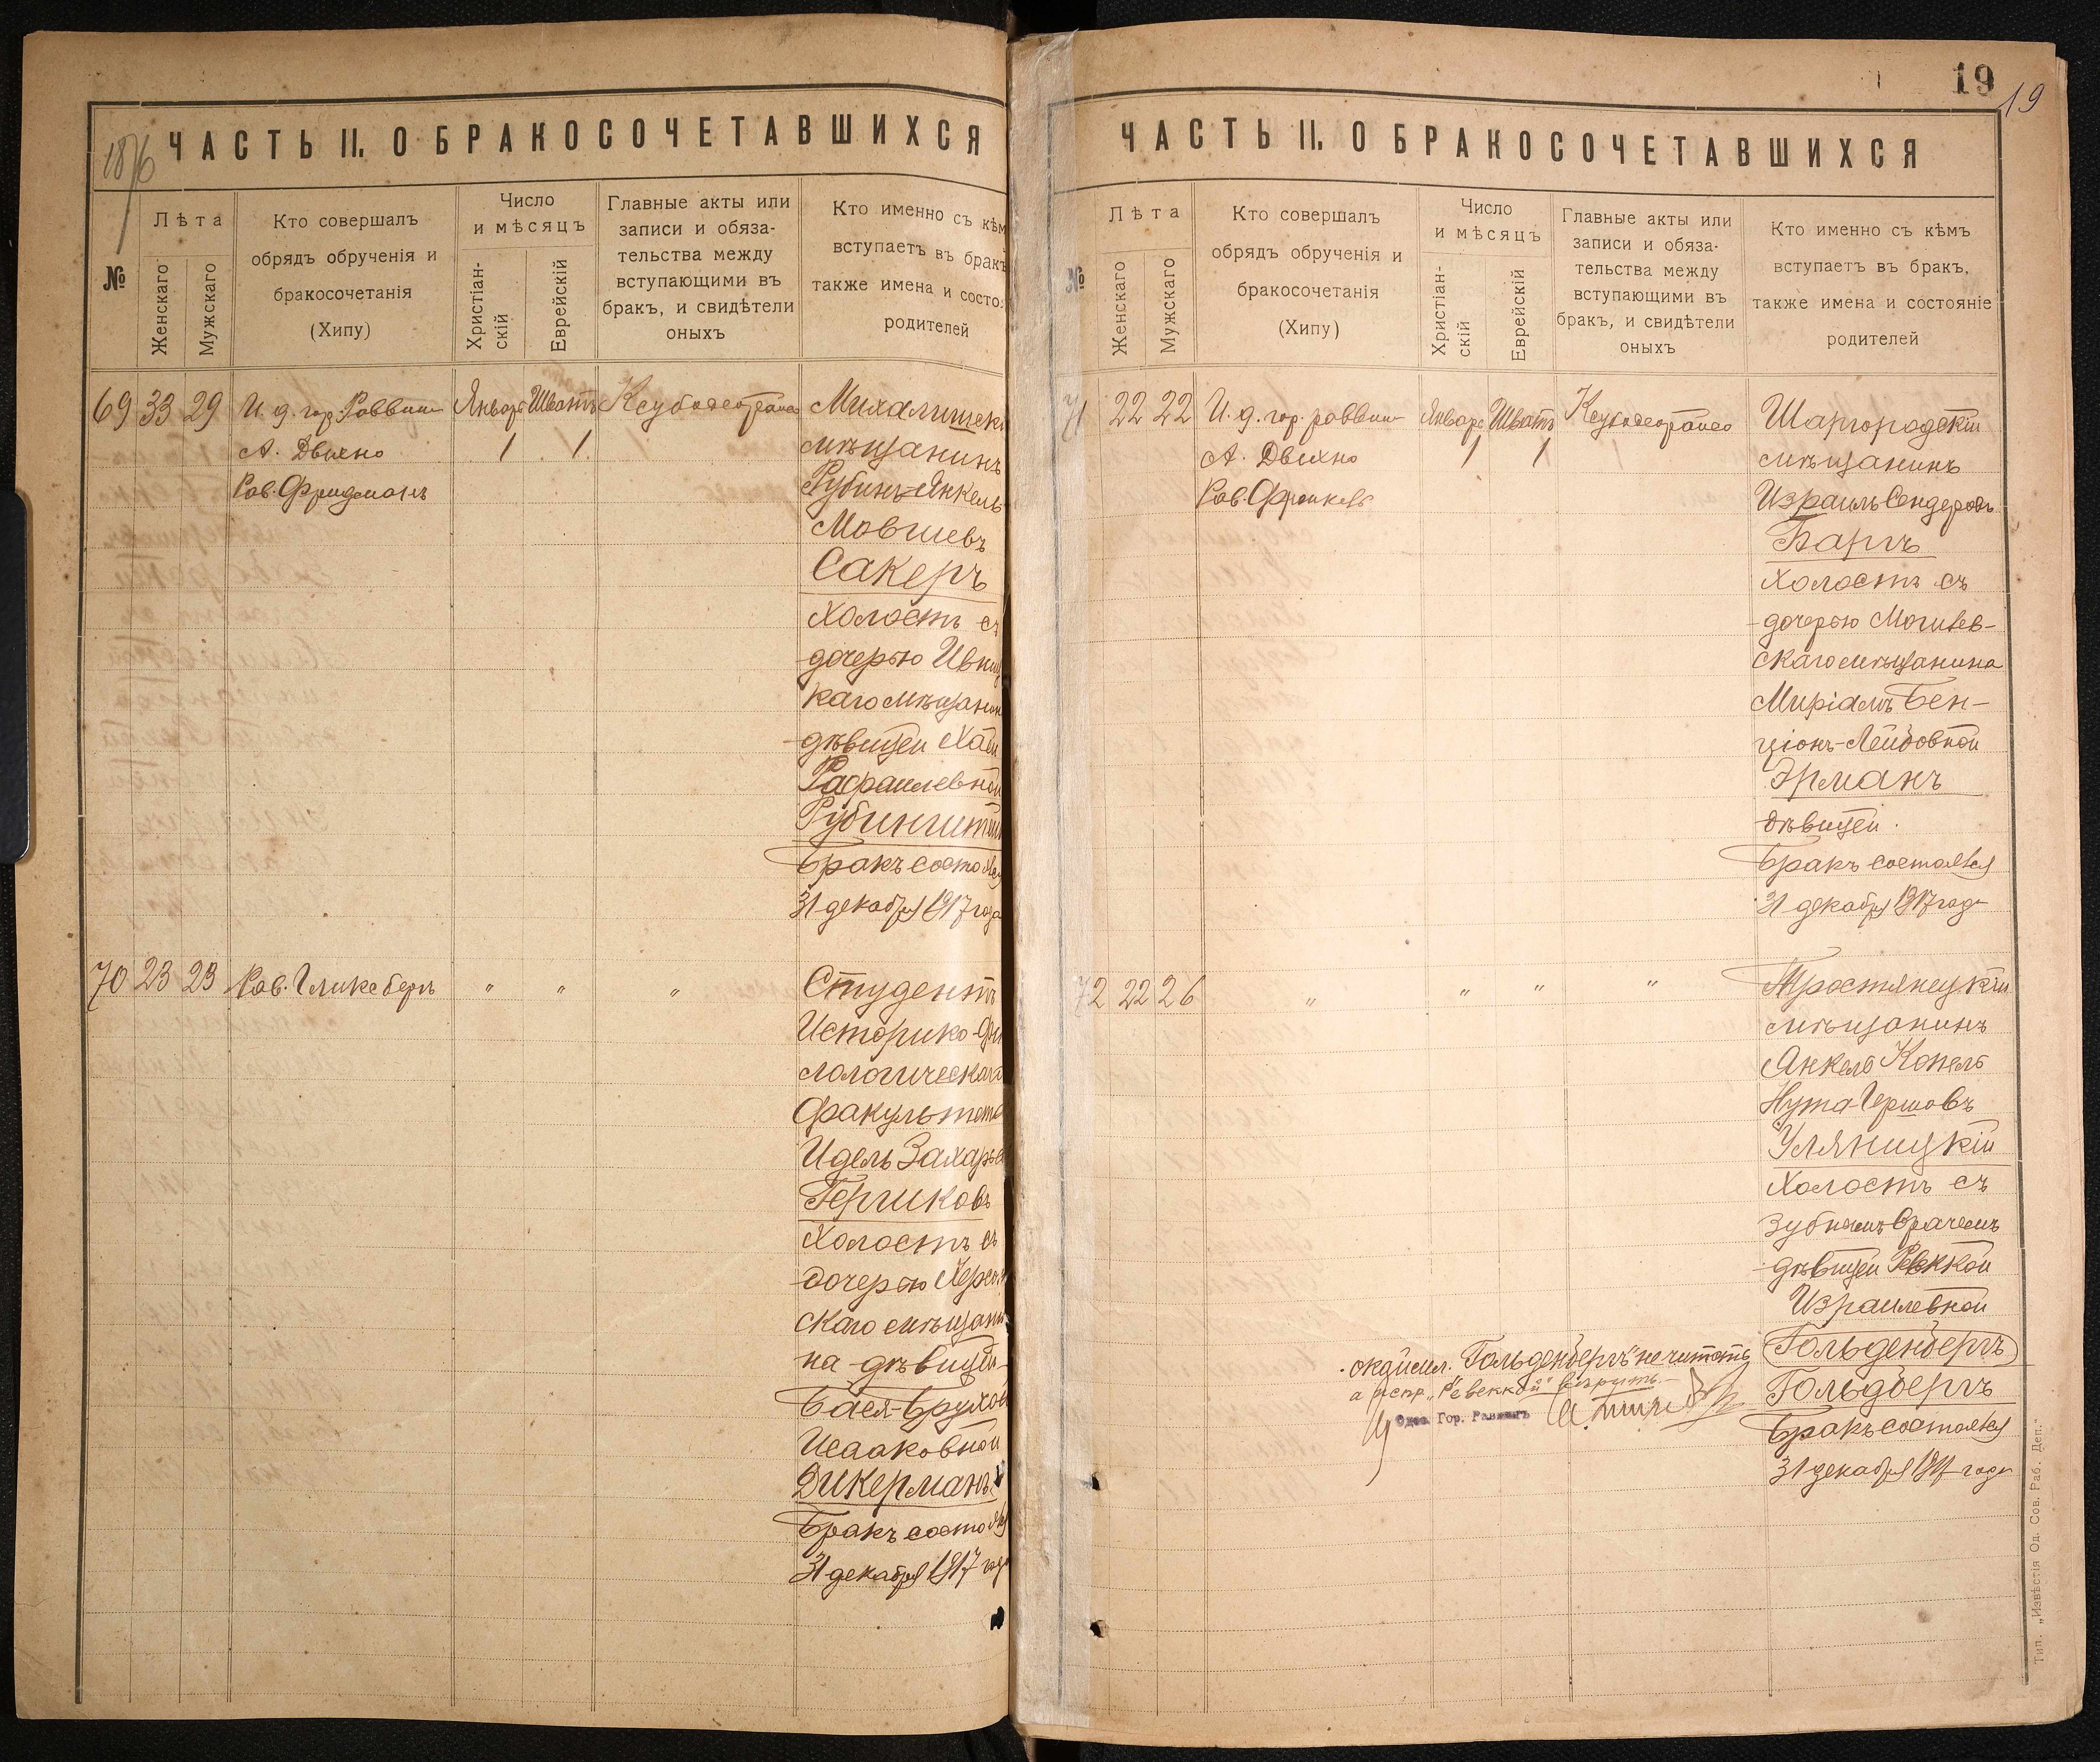 1876
ЧАСТЬ II. О БРАКОСОЧЕТАВШИХСЯ
№
Лѣта
Женскаго
Мужскаго
Кто совершалъ
обрядъ обрученія и
бракосочетанія
(Хипу)
Число
и мѣсяцъ
Христіан-
скій
Еврейскій
Главные акты или
записи и обяза-
тельства между
вступающими въ
бракъ, и свидѣтели
оныхъ
Кто именно съ кѣм
вступаетъ въ бракъ
также имена и состо
родителей
69 33 29 И. д. гор. Раввин
А. Двихно
Рав. Фридманъ
Январь Шватъ
1 1
Михалишек
мѣщанинъ
Рубинъ-Янкель
Мовшевъ
Сакеръ
холостъ съ
дочерью Ивниц
каго мѣщанин
дѣвицей Хаей
Рафаилевной
Рубинштейн
Бракъ состоялся
31 декабря 1917 года
70 23 23 Рав. Гликсбергъ " " "
Студентъ
Историко-Фи
лологическаго
факультета
Идель Захарьев
Гершковъ
холостъ съ
дочерью Херсон
скаго мѣщани
на дѣвицей
Бася-Брухой
Исааковной
Дикерманъ
Бракъ состоялся
31 декабря 1917 года
19
19
ЧАСТЬ II. О БРАКОСОЧЕТАВШИХСЯ
№
Лѣта
Женскаго
Мужскаго
Кто совершалъ
обрядъ обрученія и
бракосочетанія
(Хипу)
Число
и мѣсяцъ
Христіан-
скій
Еврейскій
Главные акты или
записи и обяза-
тельства между
вступающими въ
бракъ, и свидѣтели
оныхъ
Кто именно съ кѣмъ
вступаетъ въ бракъ,
также имена и состояніе
родителей
71 22 22 И. д. гор. раввин
А. Двихно
Рав. Френкель
Январь Шватъ
1 1
Шаргородскій
мѣщанинъ
Израиль Сендеровъ
Баргъ
холостъ съ
дочерью Могилев-
скаго мѣщанина
Миріамъ Бен-
ціонъ-Лейбовной
Эрманъ
дѣвицей.
Бракъ состоялся
31 декабря 1917 года
72 22 26 " " " "
Тростянецкій
мѣщанинъ
Янкель Копель
Нута-Гершовъ
Уляницкій
холостъ съ
зубнымъ врачемъ
дѣвицей Ревеккой
Израилевной
Гольденбергъ
Гольдбергъ
Бракъ состоялся
31 декабря 1917 года
окаймл. "Гольденбергъ" не читать
а испр. "Ревеккой" вѣрить
Одес. Гор. Раввинъ
Тип. „Извѣстія Од. Сов. Раб. Деп."